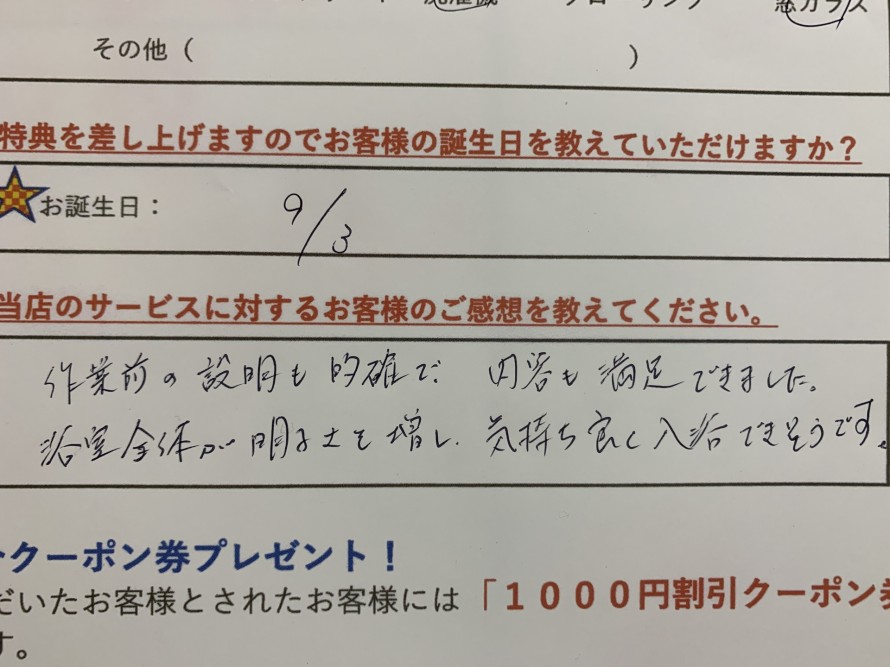 その他（　　　　　　）
特典を差し上げますのでお客様の誕生日を教えていただけますか？
お誕生日： 9/3
当店のサービスに対するお客様のご感想を教えてください。
作業前の説明も的確で、内容も満足できました。
浴室全体が明るさを増し、気持ち良く入浴できそうです。
クーポン券プレゼント！
だいたお客様とされたお客様には「１０００円割引クーポン券
す。